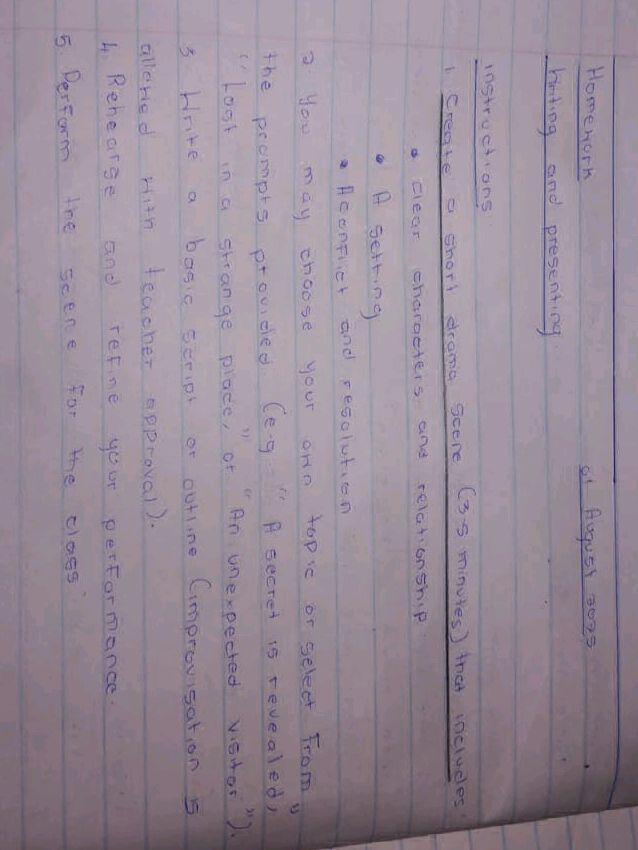 Homework 01 August 2025
Writing and presenting
instructions
1. Create a short drama scene (3-5 minutes) that includes
• clear characters and relationship
• A setting
• A conflict and resolution
2. You may choose your own topic or select from
the prompts provided (e.g "A secret is revealed,"
"Lost in a strange place," or "An unexpected visitor").
3. Write a basic script or outline (improvisation is
allowed with teacher approval).
4. Rehearse and refine your performance.
5. Perform the scene for the class